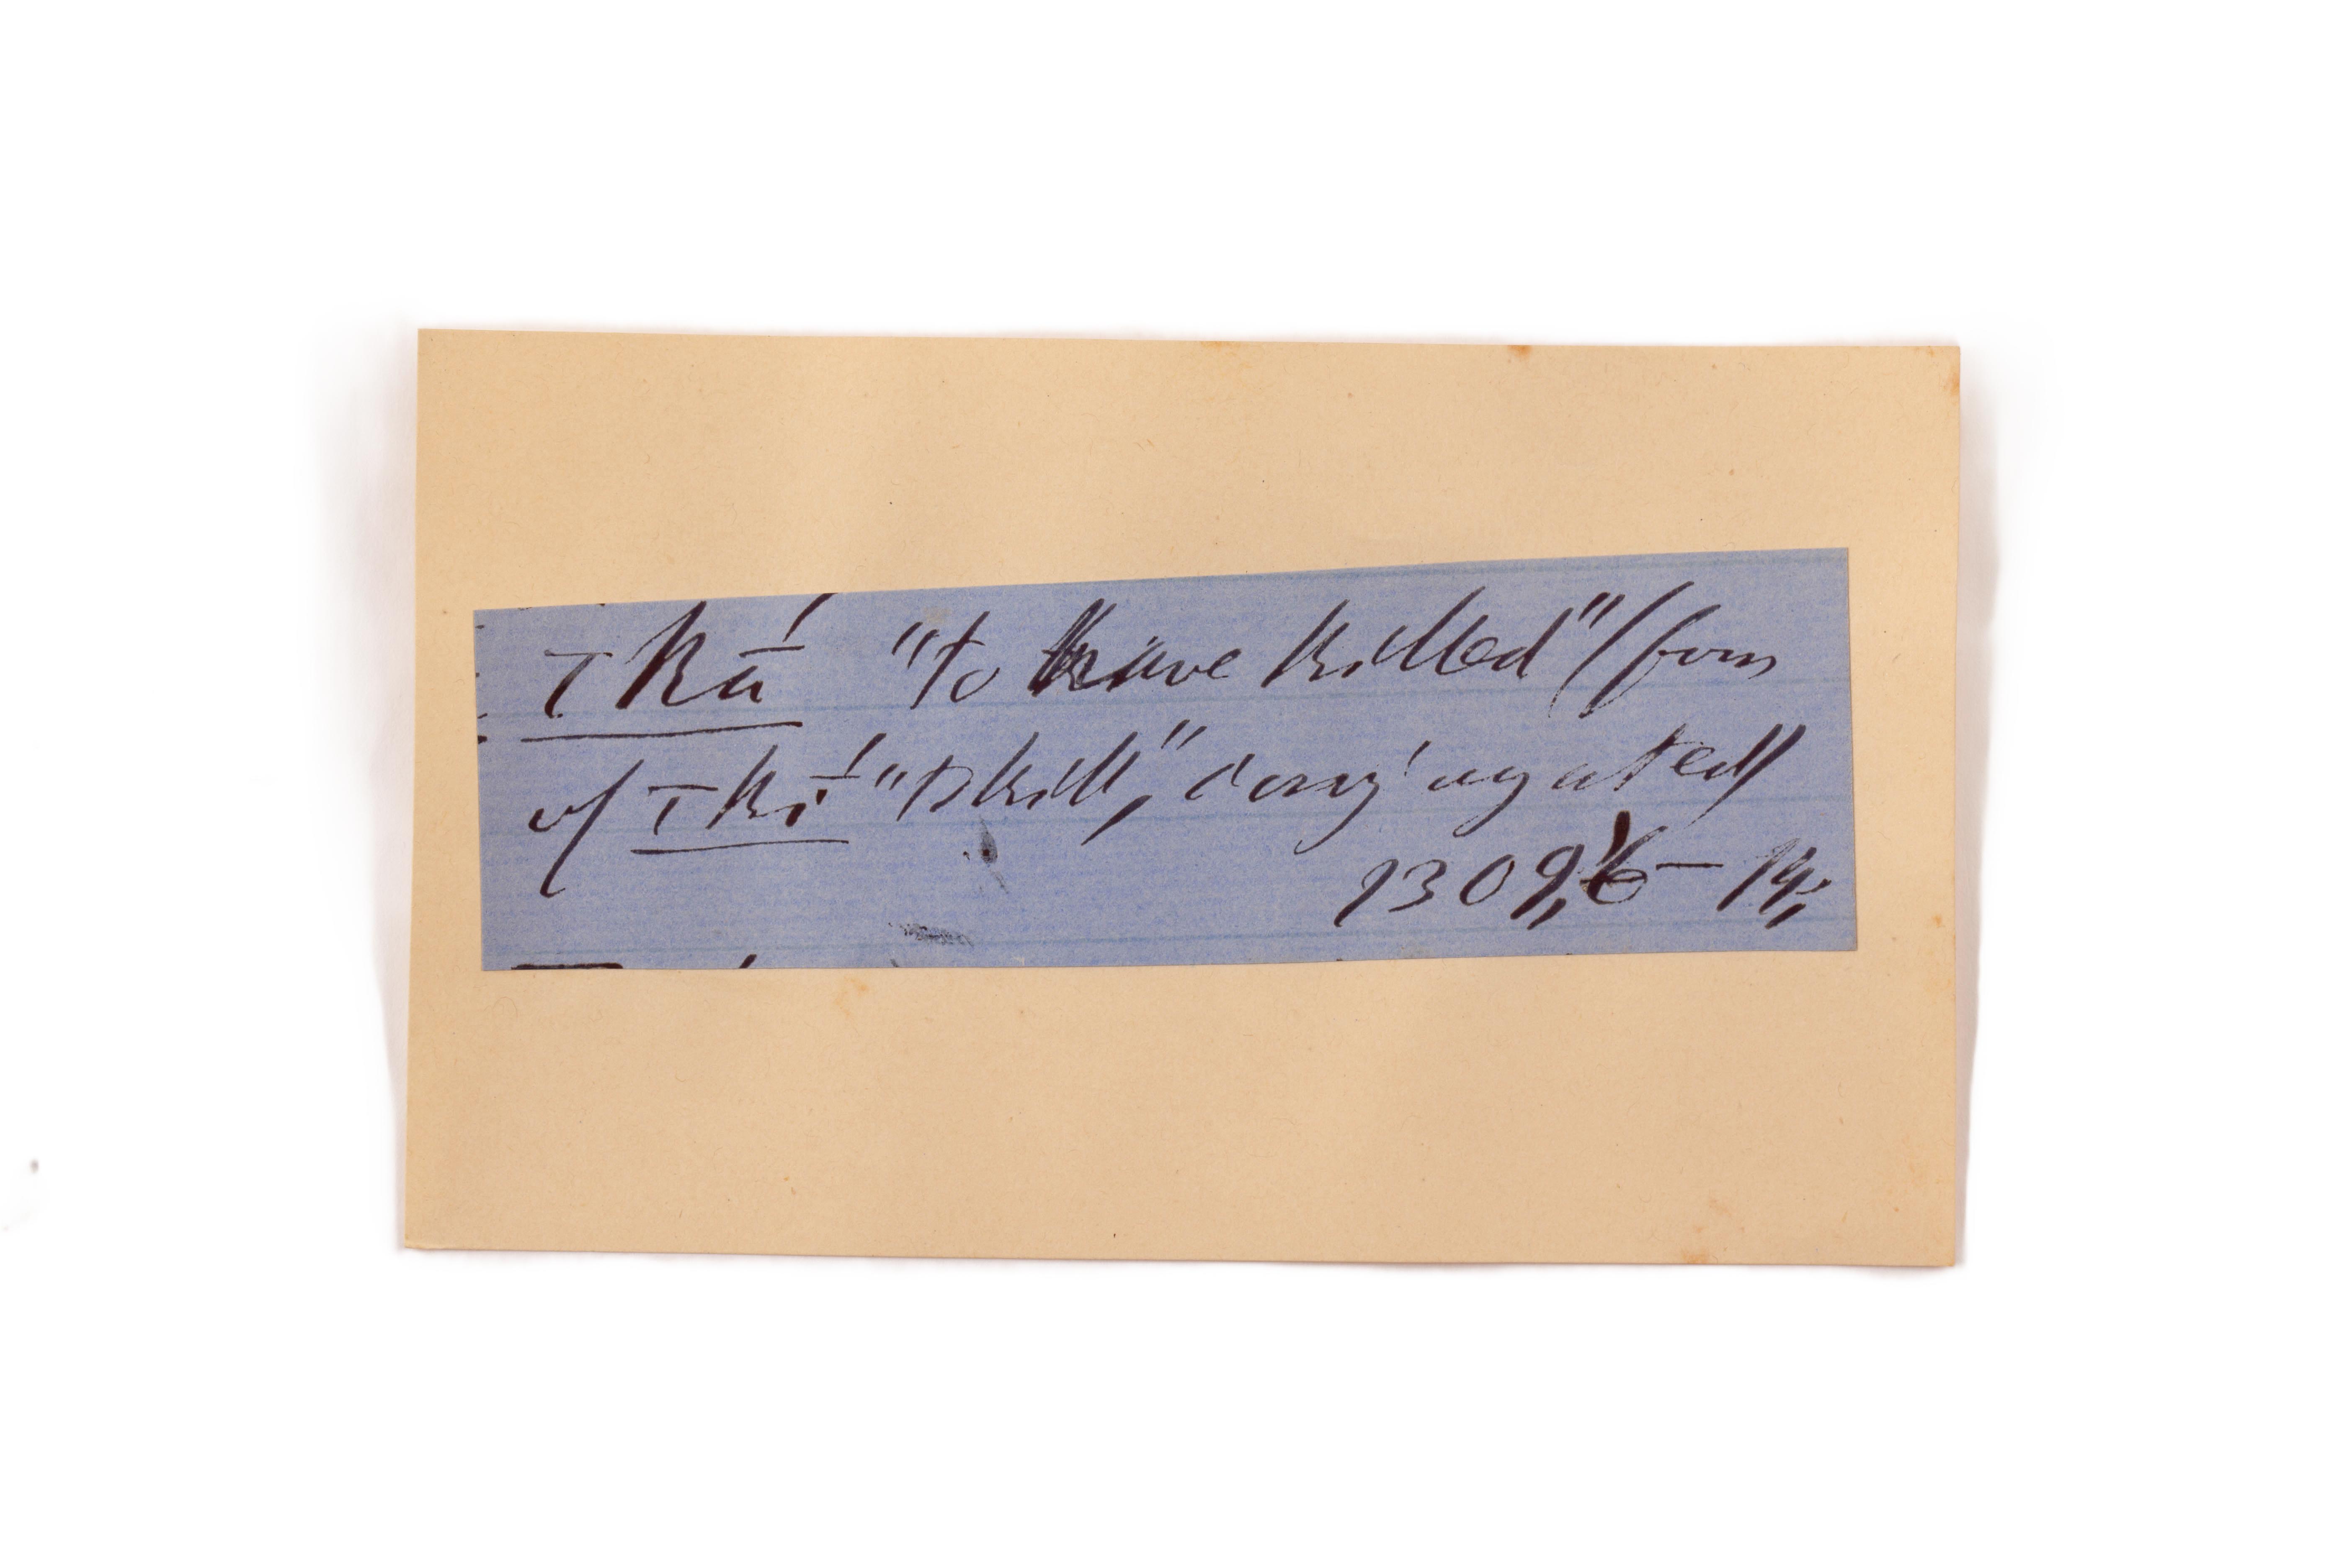 Tkā́ "to have killed" (form
of Tkī́ "to kill," conjugated)
1309, 6 – 14,